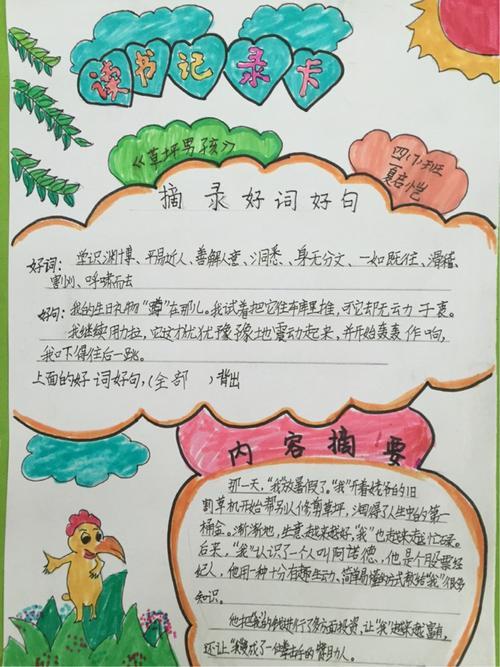 读书记录卡
《草坪男孩》
四(7)班
夏君恺
摘录好词好句
好词：学识渊博、平易近人、善解人意、洞悉、身无分文、一如既往、滑稽、
割刈、呼啸而去
好句：我的生日礼物“蹲”在那儿。我试着把它往车库里推，可它却无动于衷。
我继续用力拉，它这才犹犹豫豫地震动起来，并开始轰轰作响，
我吓得往后一跳。
上面的好词好句，(全部 )背出
内容摘要
那一天，“我”放暑假了。“我”开着姥爷的旧
割草机开始帮别人修剪草坪，淘得了人生中的第一
桶金。渐渐地，生意越来越好，“我”也越来越忙碌。
后来，“我”认识了一个人叫阿诺德，他是个股票经
纪人，他用一种十分有趣生动、简单易懂的方式教给“我”很多
知识。
他把“我”的钱进行了多方面投资，让“我”越来越富有，
还让“我”变成了一位拳击手的赞助人。